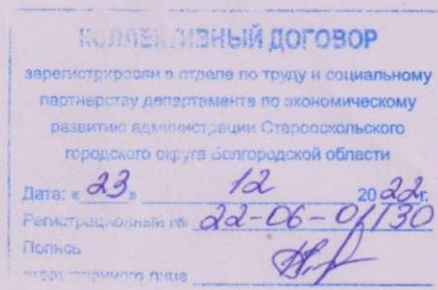 КОЛЛЕКТИВНЫЙ ДОГОВОР
зарегистрирован в отделе по труду и социальному
партнерству департамента по экономическому
развитию администрации Старооскольского
городского округа Белгородской области
Дата: « 23 » 12 2022г.
Регистрационный № 22-06-01/130
Подпись
ответственного лица